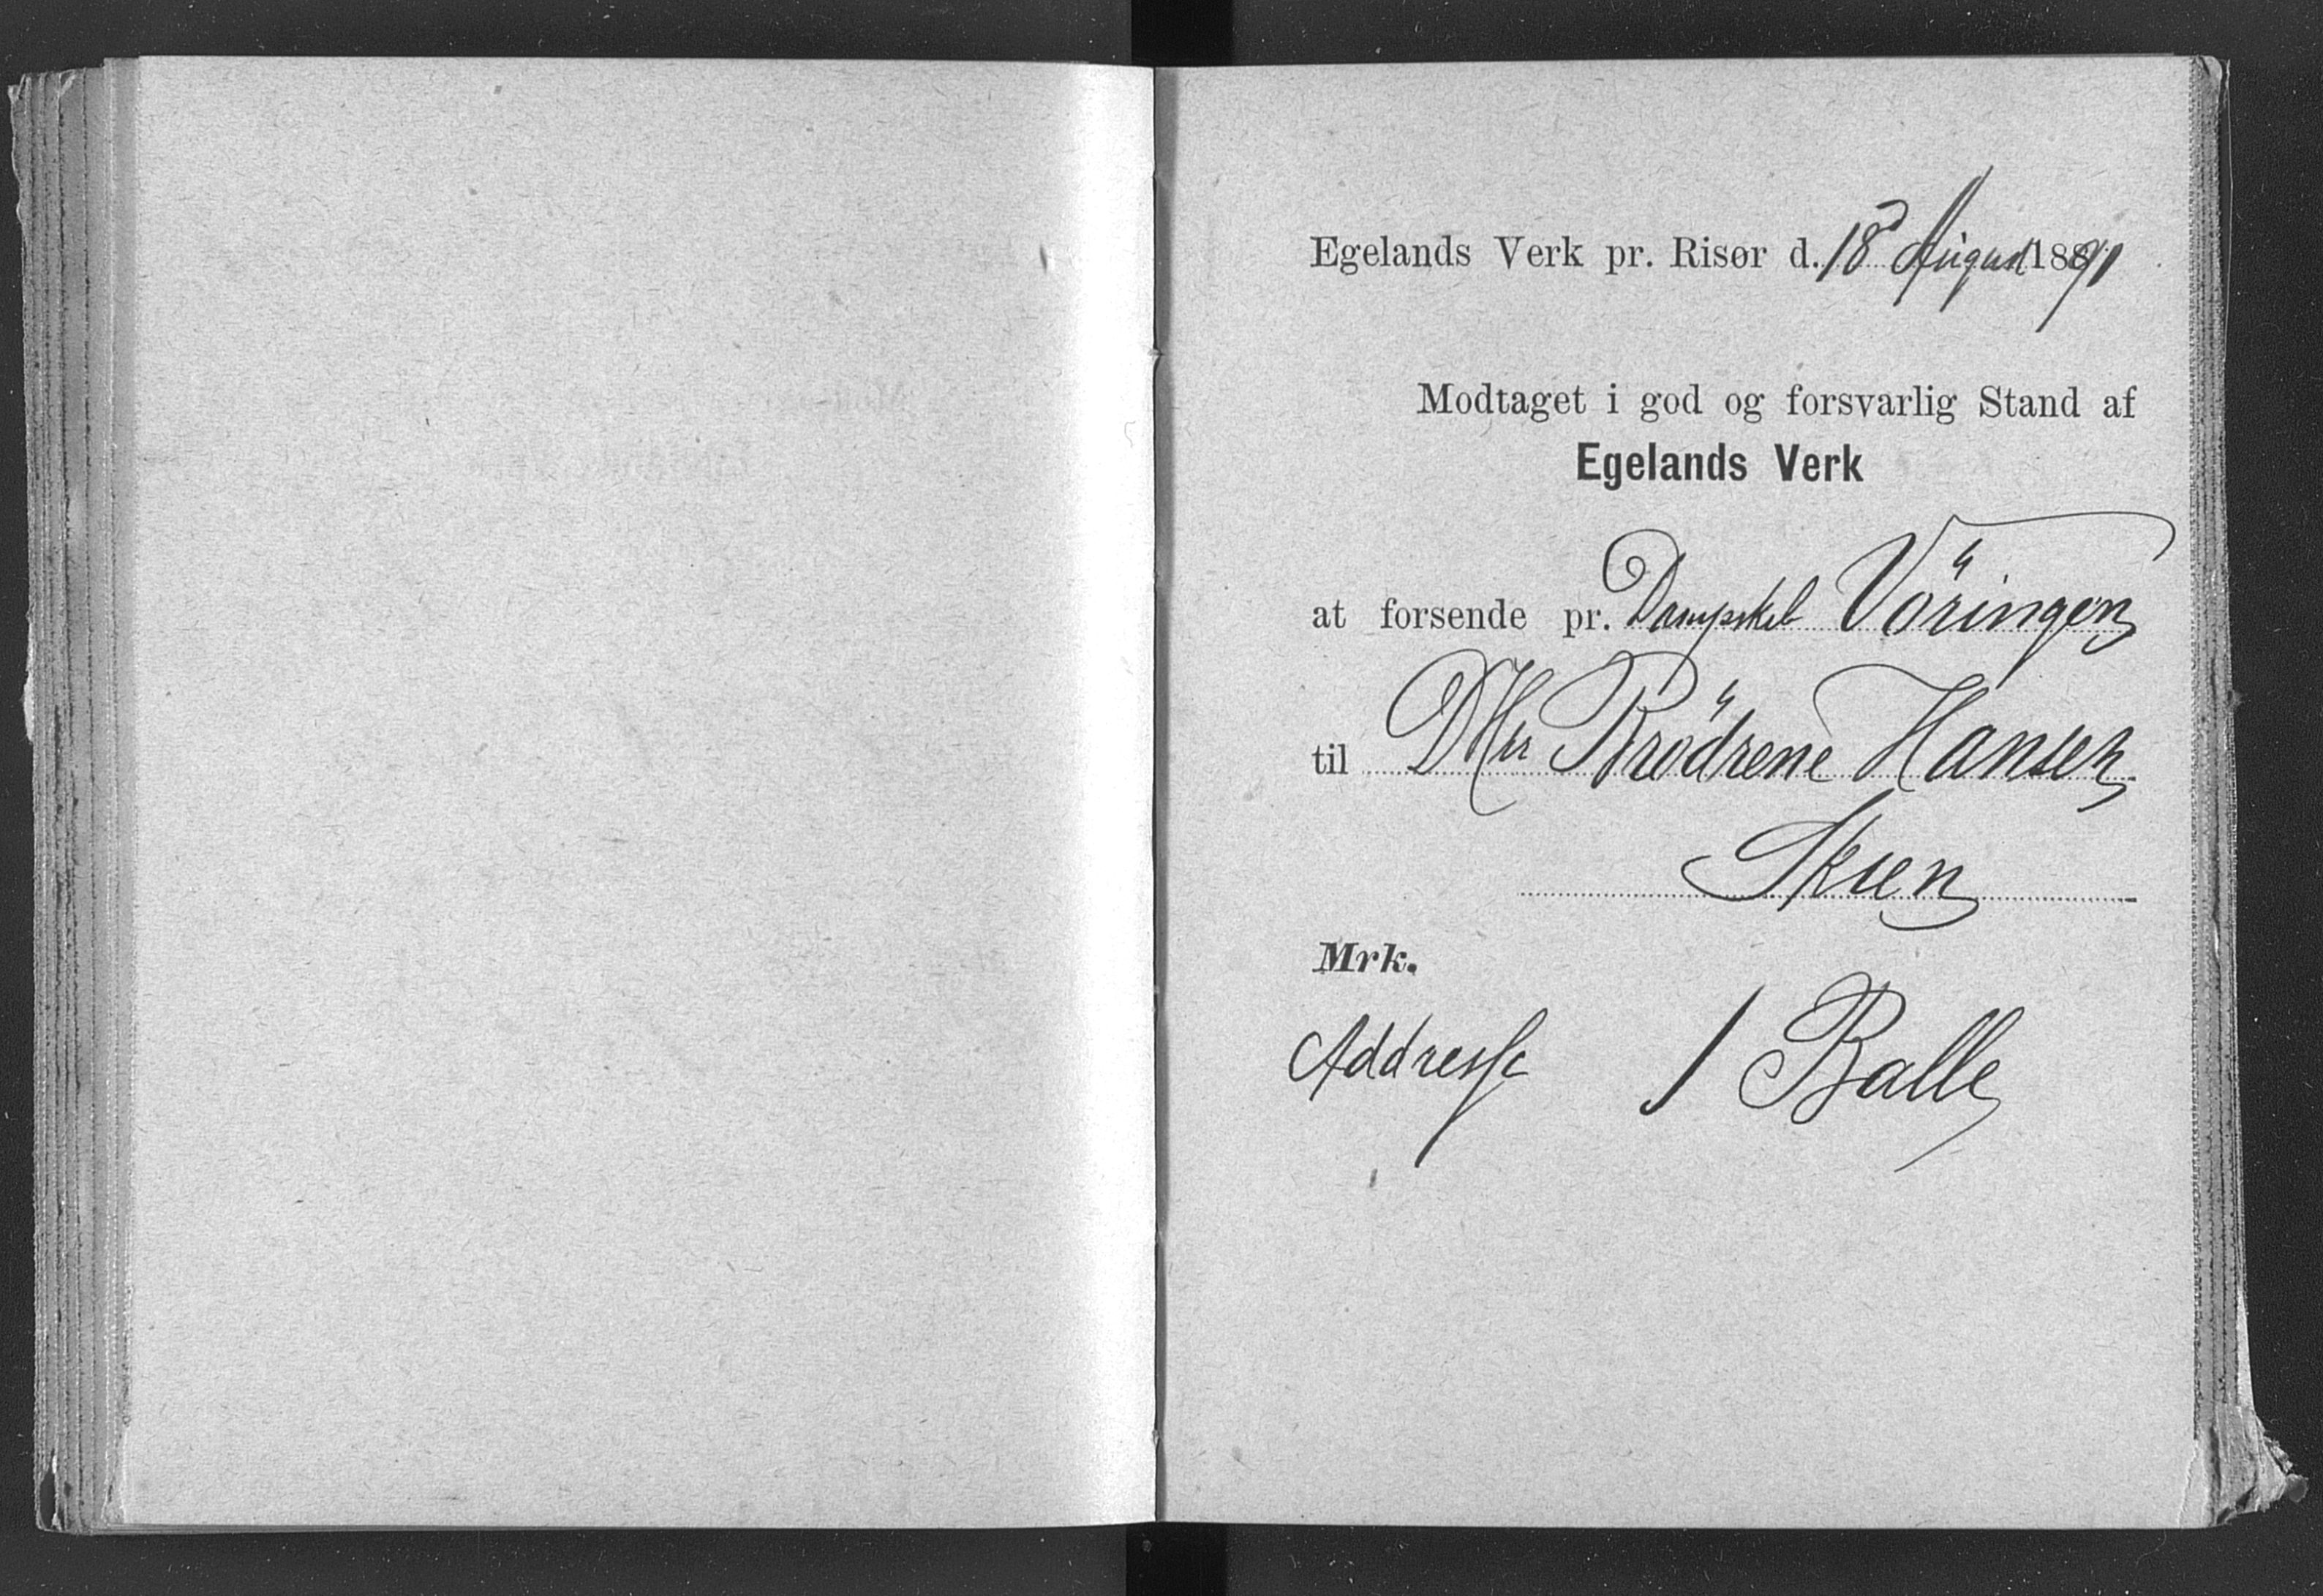 Egelands Verk pr. Risør d. 18d August 1891
Modtaget i god og forsvarlig Stand af
Egelands Verk
at forsende pr. Dampskib Vöringen
til DHrr Brödrene Hansen
Skien
Mrk.
Addresse 1 Balle